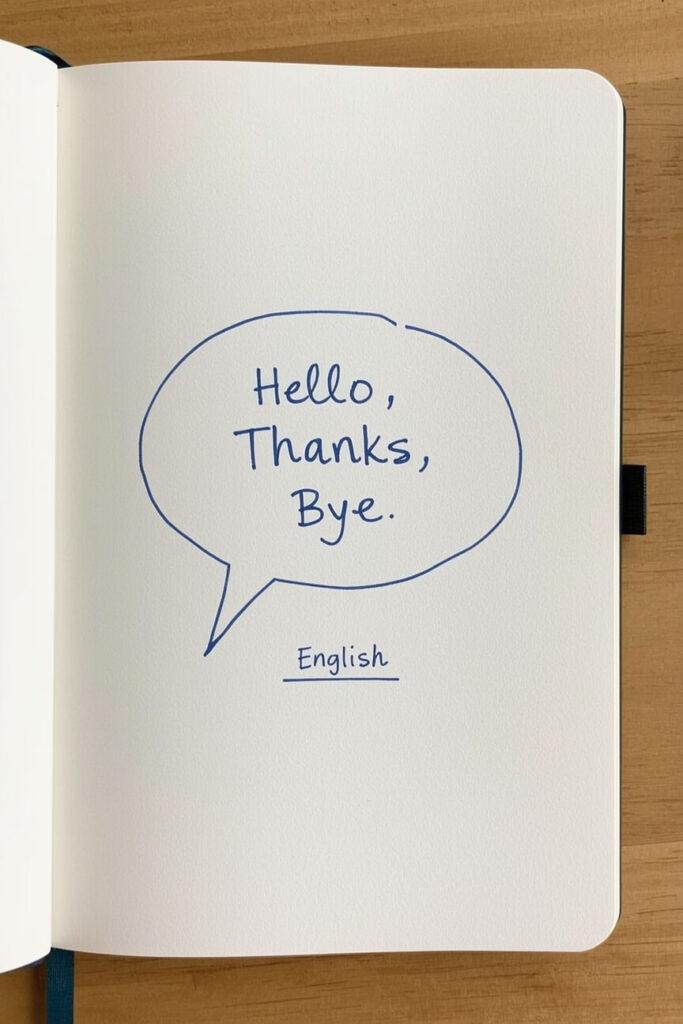 Hello,
Thanks,
Bye.
English